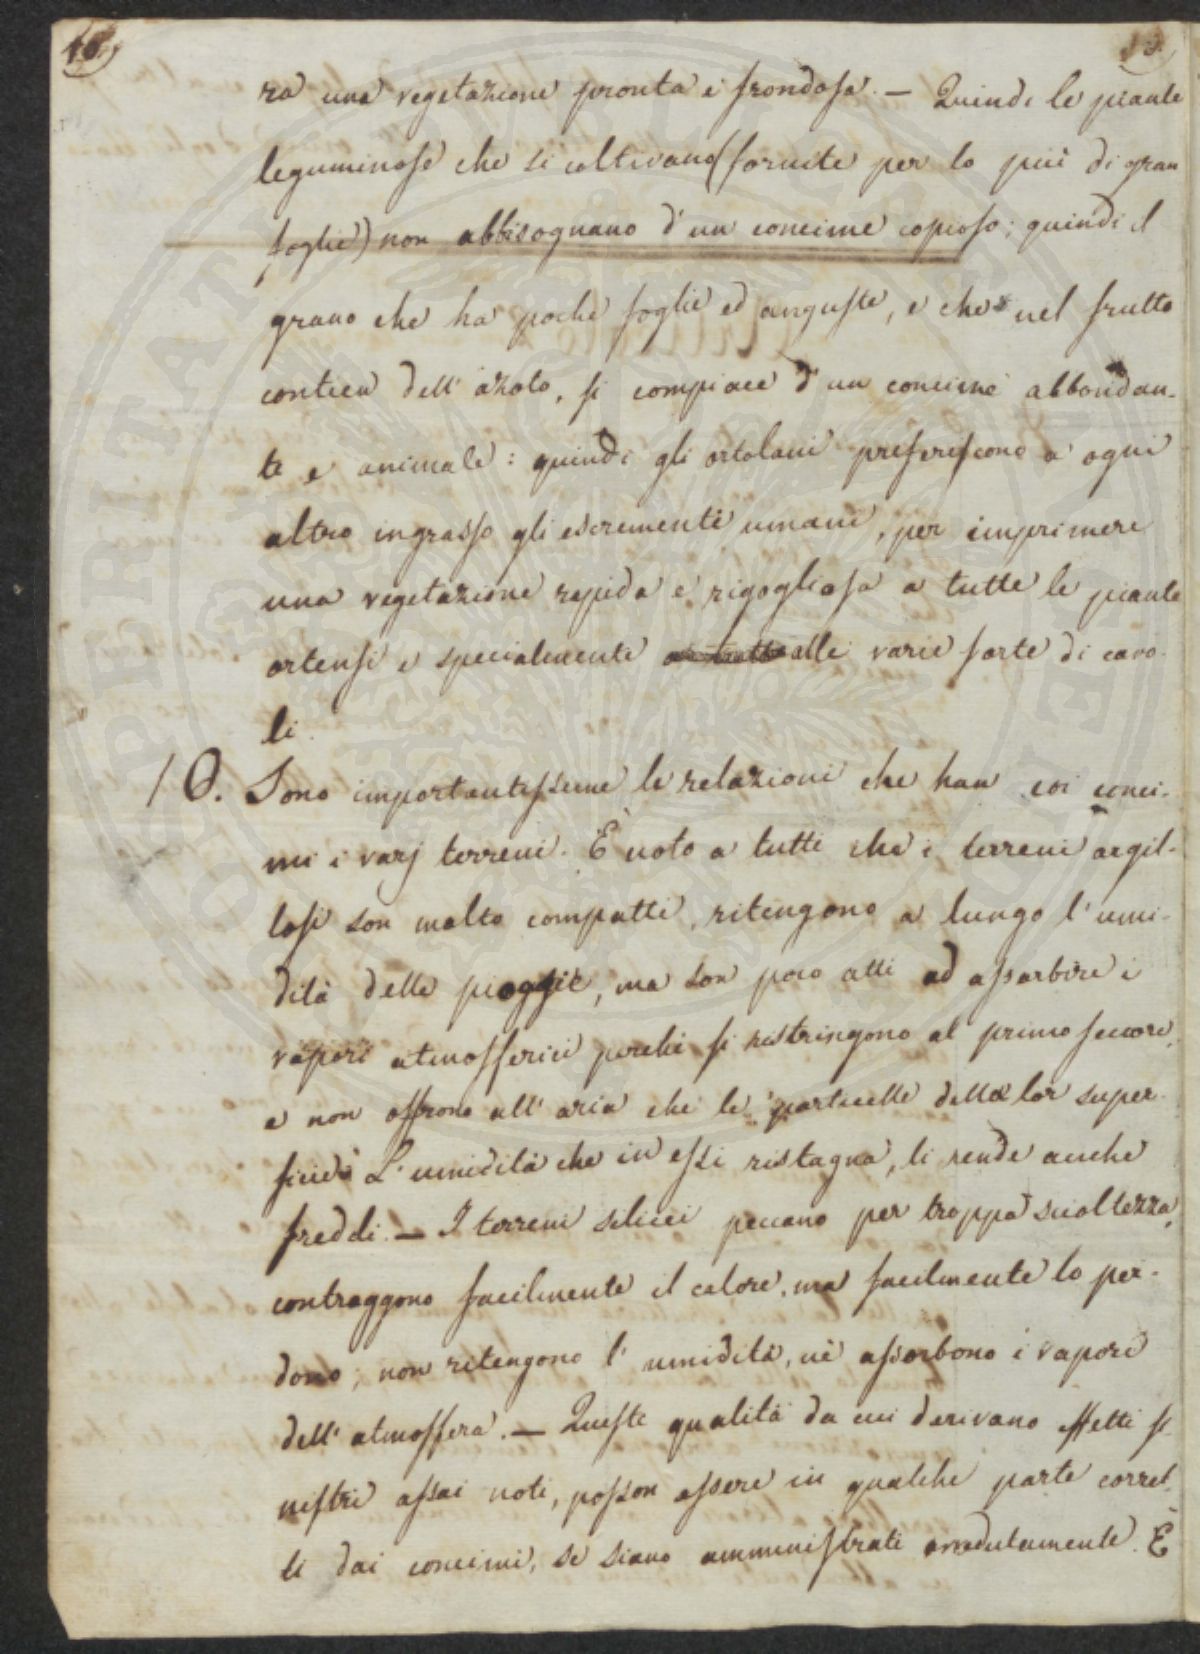 18.
13.
ra una vegetazione pronta e frondosa. — Quindi le piante
leguminose che si coltivano (fornite per lo più di gran
foglie) non abbisognano d'un concime copioso; quindi il
grano che ha poche foglie ed anguste, e che nel frutto
contien dell'azoto, si compiace d'un concime abbondan-
te e animale: quindi gli ortolani preferiscono a ogni
altro ingrasso gli escrementi umani, per imprimere
una vegetazione rapida e rigogliosa a tutte le piante
ortensi e specialmente alle varie sorte di cavo-
li.
10. Sono importantissime le relazioni che han coi conci-
mi i varj terreni. È noto a tutti che i terreni argil-
losi son molto compatti, ritengono a lungo l'umi-
dità delle pioggie, ma son poco atti ad assorbire i
vapori atmosferici perchè si restringono al primo seccore,
e non offrono all'aria che le particelle della lor super-
ficie. L'umidità che in essi ristagna, li rende anche
freddi. — I terreni silicei peccano per troppa scioltezza,
contraggono facilmente il calore, ma facilmente lo per-
dono; non ritengono l'umidità, nè assorbono i vapori
dell'atmosfera. — Queste qualità da cui derivano effetti si-
nistri assai noti, posson essere in qualche parte corret-
ti dai concimi, se siano amministrati avvedutamente. È